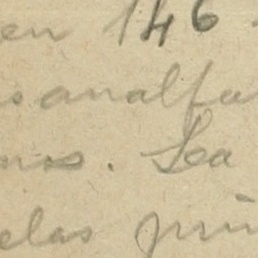 en 146.
sanalfa
mos. La
elas pri